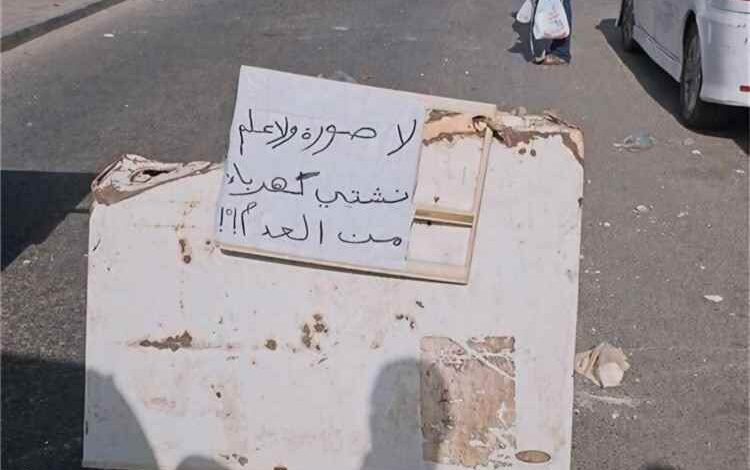 لا صورة ولا علم
نشتي كهرباء
من العدم!°!